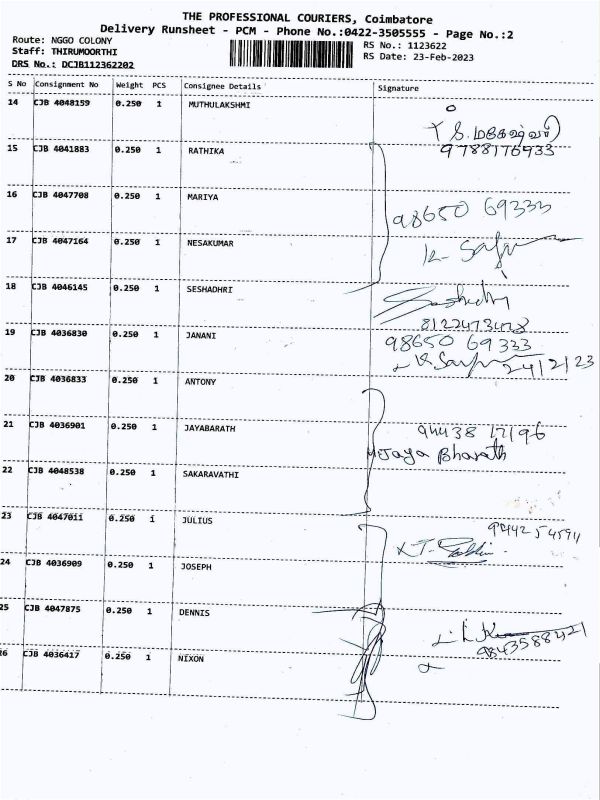 THE PROFESSIONAL COURIERS, Coimbatore
Delivery Runsheet - PCM - Phone No.:0422-3505555 - Page No.:2
Route: NGGO COLONY
Staff: THIRUMOORTHI
DRS No.: DCJB112362202
RS No.: 1123622
RS Date: 23-Feb-2023
S No Consignment No Weight PCS Consignee Details Signature
14 CJB 4048159 0.250 1 MUTHULAKSHMI
S. மகேஷ்வரி
9788176933
15 CJB 4041883 0.250 1 RATHIKA
16 CJB 4047708 0.250 1 MARIYA
98650 69333
17 CJB 4047164 0.250 1 NESAKUMAR
18 CJB 4046145 0.250 1 SESHADHRI
Seshadri
8122473428
19 CJB 4036830 0.250 1 JANANI
98650 69 333
24/2/23
20 CJB 4036833 0.250 1 ANTONY
21 CJB 4036901 0.250 1 JAYABARATH
94438 17196
Jaya Bharath
22 CJB 4048538 0.250 1 SAKARAVATHI
23 CJB 4047011 0.250 1 JULIUS
9442254591
24 CJB 4036909 0.250 1 JOSEPH
25 CJB 4047875 0.250 1 DENNIS
9843588421
26 CJB 4036417 0.250 1 NIXON